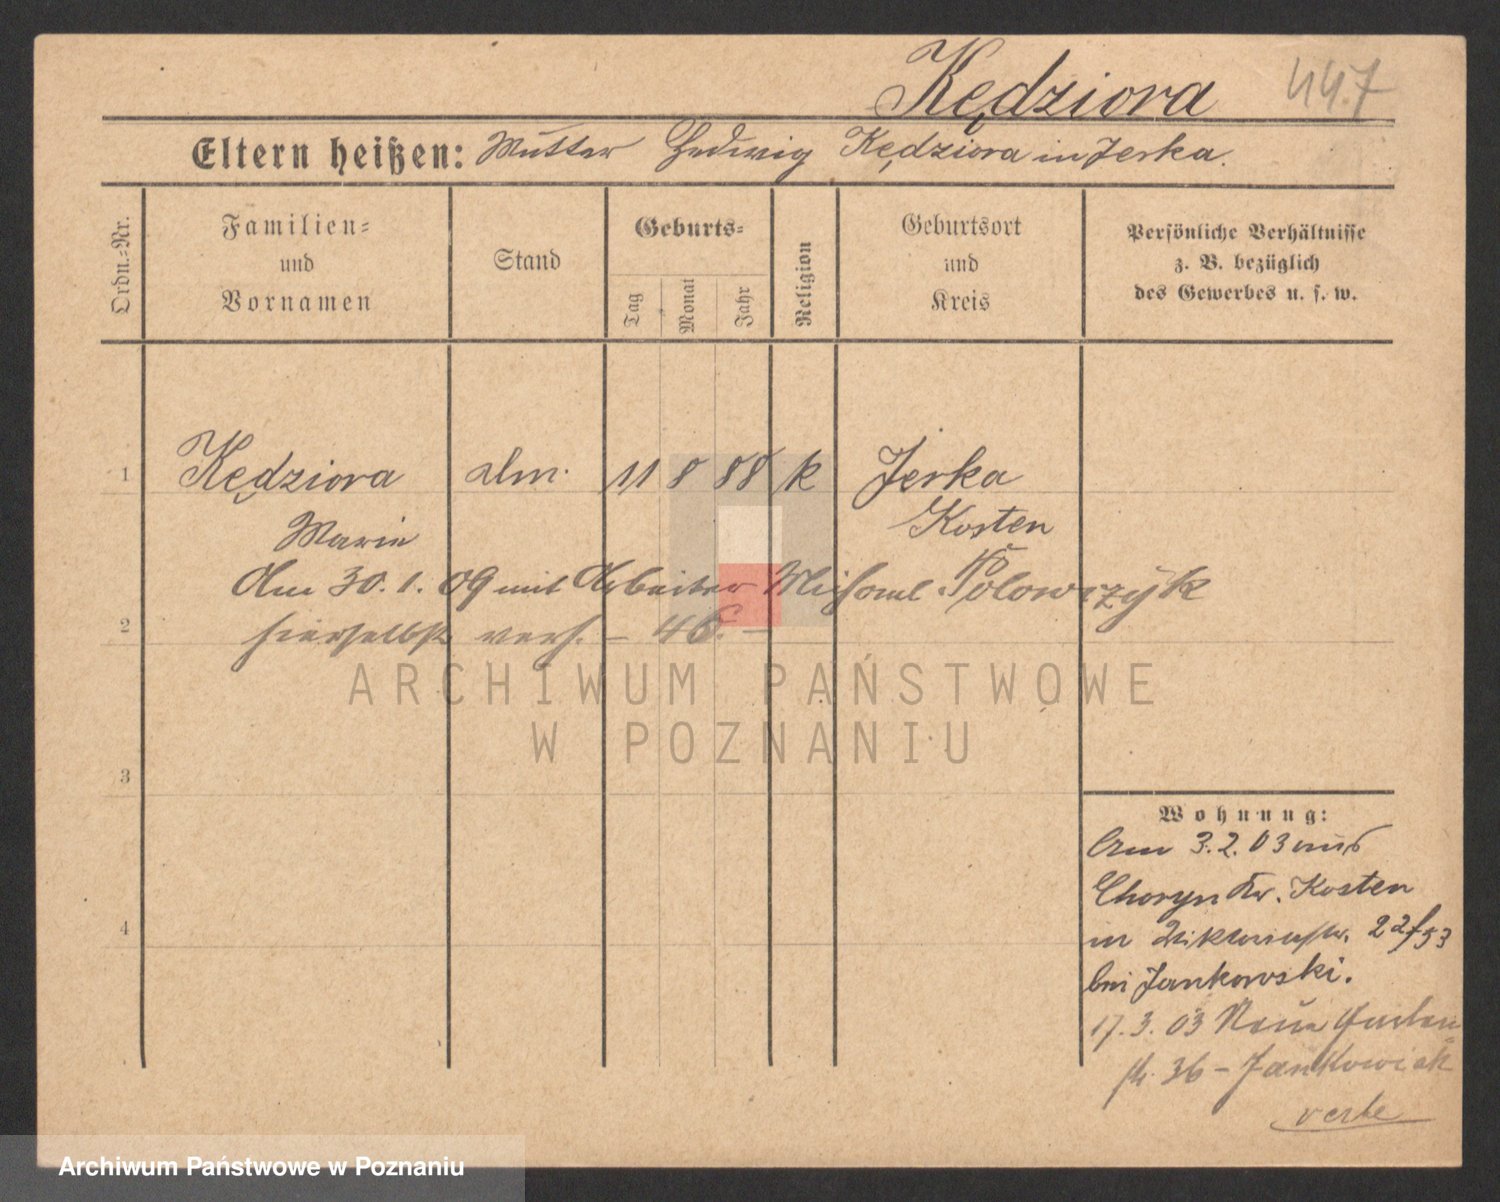 Kędziora 447
Eltern heißen: Mutter Hedwig Kędziora in Jerka.
Ordn.-Nr.
Familien=
und
Vornamen
Stand
Geburts=
Tag
Monat
Jahr
Religion
Geburtsort
und
Kreis
Persönliche Verhältnisse
z. B. bezüglich
des Gewerbes u. s. w.
1 Kędziora 11 8 88 k Jerka
Marie Kosten
Am 30. 1. 09 mit Arbeiter Michael Polowczyk
2 hierselbst verh. –
ARCHIWUM PAŃSTWOWE
W POZNANIU
3
4
Wohnung:
Am 3. 2. 03 aus
Choryn Kr. Kosten
in Viktoriastr. 22
bei Jankowski.
17. 3. 03 Neue Garten
str. 36 – Jankowiak
verte
Archiwum Państwowe w Poznaniu